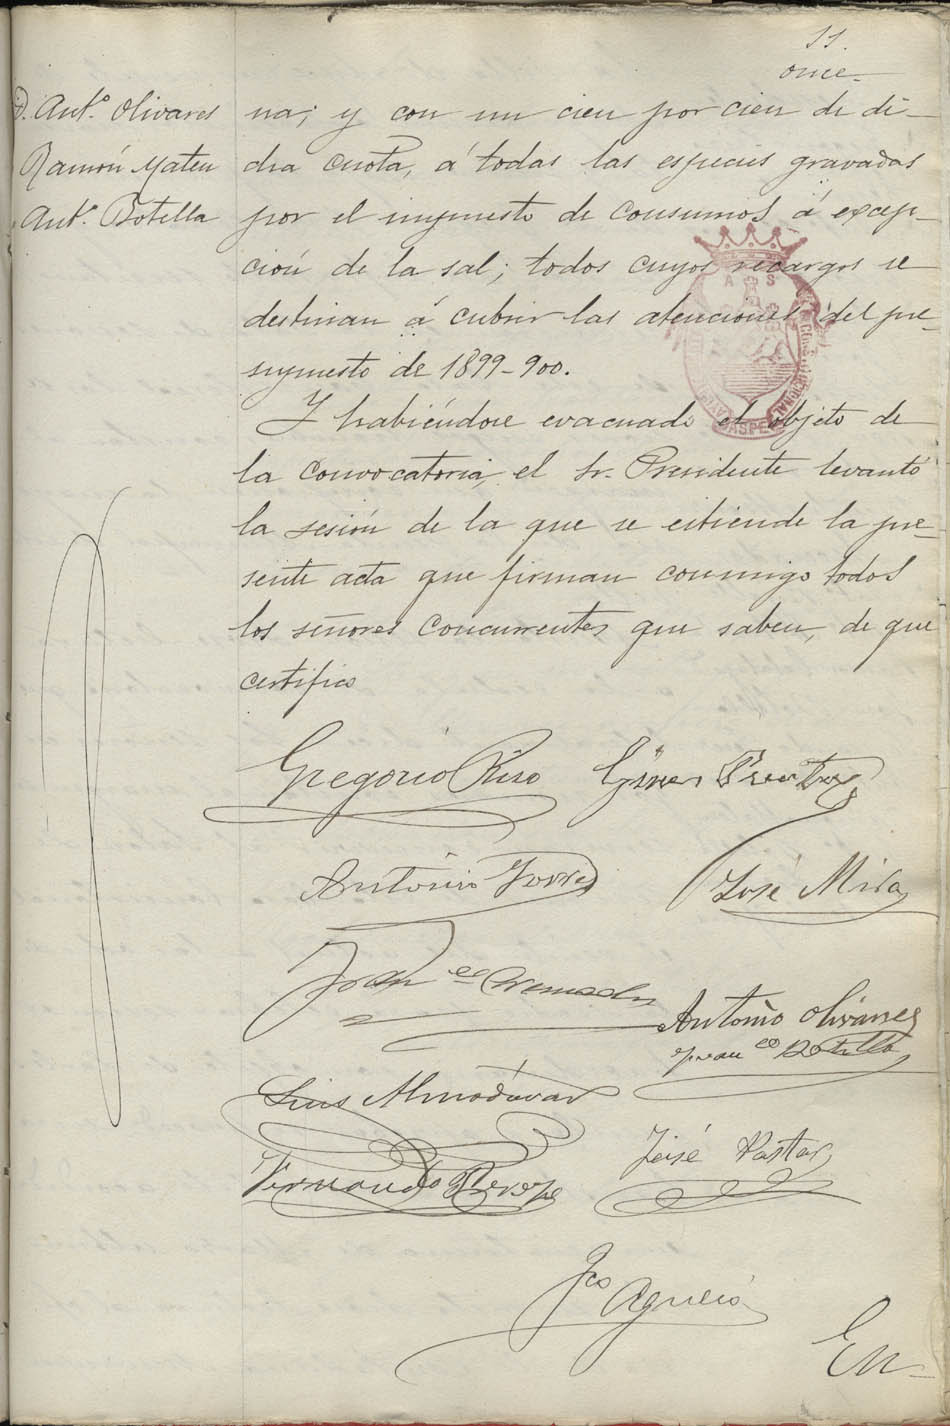 11.
once
D. Antº Olivares
Ramón Mateu
Antº Botella
na; y con un cien por cien de di-
cha cuota, á todas las especies gravadas
por el impuesto de consumos á excep-
ción de la sal; todos cuyos recargos se
destinan á cubrir las atenciones del pre-
supuesto de 1899-900.
Y habiéndose evacuado el objeto de
la convocatoria, el Sr. Presidente levantó
la sesión de la que se estiende la pre-
sente acta que firman conmigo todos
los señores concurrentes que saben, de que
certifico
Gregorio Rico
Antonio
José Mira
Antonio Olivares
Franco Botella
Luis Almodóvar
José Pastor
Fernando
Fco
En